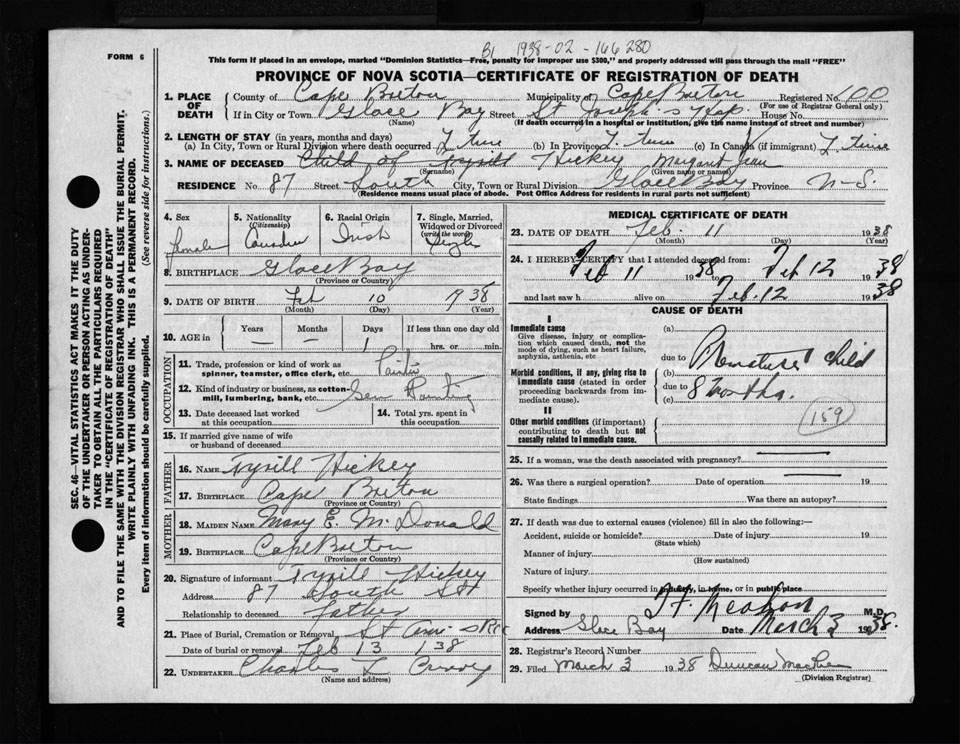 B1 1938-02-166280
FORM 6
This form if placed in an envelope, marked "Dominion Statistics—Free, penalty for improper use $300," and properly addressed will pass through the mail "FREE"
PROVINCE OF NOVA SCOTIA—CERTIFICATE OF REGISTRATION OF DEATH
1. PLACE OF DEATH
County of Cape Breton Municipality of Cape Breton Registered No. 100
(For use of Registrar General only)
If in City or Town Glace Bay Street St Joseph's Hosp. House No.
(Name) (If death occurred in a hospital or institution, give the name instead of street and number)
2. LENGTH OF STAY (in years, months and days)
(a) In City, Town or Rural Division where death occurred L. time (b) In Province L. time (c) In Canada (if immigrant) L. time
3. NAME OF DECEASED Child of Tyrill Hickey Margaret Jean
(Surname) (Given name or names)
RESIDENCE No. 87 Street South City, Town or Rural Division Glace Bay Province N-S.
(Residence means usual place of abode. Post Office Address for residents in rural parts not sufficient)
SEC. 46—VITAL STATISTICS ACT MAKES IT THE DUTY
OF THE UNDERTAKER OR PERSON ACTING AS UNDER-
TAKER TO OBTAIN ALL THE PARTICULARS REQUIRED
IN THE "CERTIFICATE OF REGISTRATION OF DEATH"
AND TO FILE THE SAME WITH THE DIVISION REGISTRAR WHO SHALL ISSUE THE BURIAL PERMIT.
WRITE PLAINLY WITH UNFADING INK. THIS IS A PERMANENT RECORD.
Every item of information should be carefully supplied. (See reverse side for instructions.)
4. Sex 5. Nationality (Citizenship) 6. Racial Origin 7. Single, Married, Widowed or Divorced (write the word)
female Canadian Irish Single
8. BIRTHPLACE Glace Bay
(Province or Country)
9. DATE OF BIRTH Feb 10 1938
(Month) (Day) (Year)
10. AGE in Years Months Days If less than one day old
— — 1 hrs. or min.
OCCUPATION
11. Trade, profession or kind of work as spinner, teamster, office clerk, etc. Painter
12. Kind of industry or business, as cotton-mill, lumbering, bank, etc. Gen Painting
13. Date deceased last worked at this occupation
14. Total yrs. spent in this occupation
15. If married give name of wife or husband of deceased
FATHER
16. NAME Tyrill Hickey
17. BIRTHPLACE Cape Breton
(Province or Country)
MOTHER
18. MAIDEN NAME Mary E. McDonald
19. BIRTHPLACE Cape Breton
(Province or Country)
20. Signature of informant Tyrill Hickey
Address 87 South St
Relationship to deceased Father
21. Place of Burial, Cremation or Removal St Ann's
Date of burial or removal Feb 13 1938
22. UNDERTAKER Charles L
(Name and address)
MEDICAL CERTIFICATE OF DEATH
23. DATE OF DEATH Feb. 11 1938
(Month) (Day) (Year)
24. I HEREBY CERTIFY that I attended deceased from:
Feb 11 1938 to Feb 12 1938
and last saw h alive on Feb. 12 1938
CAUSE OF DEATH
I
Immediate cause
Give disease, injury or complication which caused death, not the mode of dying, such as heart failure, asphyxia, asthenia, etc
(a)
due to Premature child
Morbid conditions, if any, giving rise to immediate cause (stated in order proceeding backwards from immediate cause).
(b)
due to 8 months.
(c)
159
II
Other morbid conditions (if important) contributing to death but not causally related to immediate cause.
25. If a woman, was the death associated with pregnancy?
26. Was there a surgical operation? Date of operation 19
State findings Was there an autopsy?
27. If death was due to external causes (violence) fill in also the following:—
Accident, suicide or homicide? Date of injury 19
(State which)
Manner of injury
(How sustained)
Nature of injury
Specify whether injury occurred in industry, in home, or in public place
Signed by M.D.
Address Glace Bay Date March 3 1938.
28. Registrar's Record Number
29. Filed March 3 1938 Duncan
(Division Registrar)